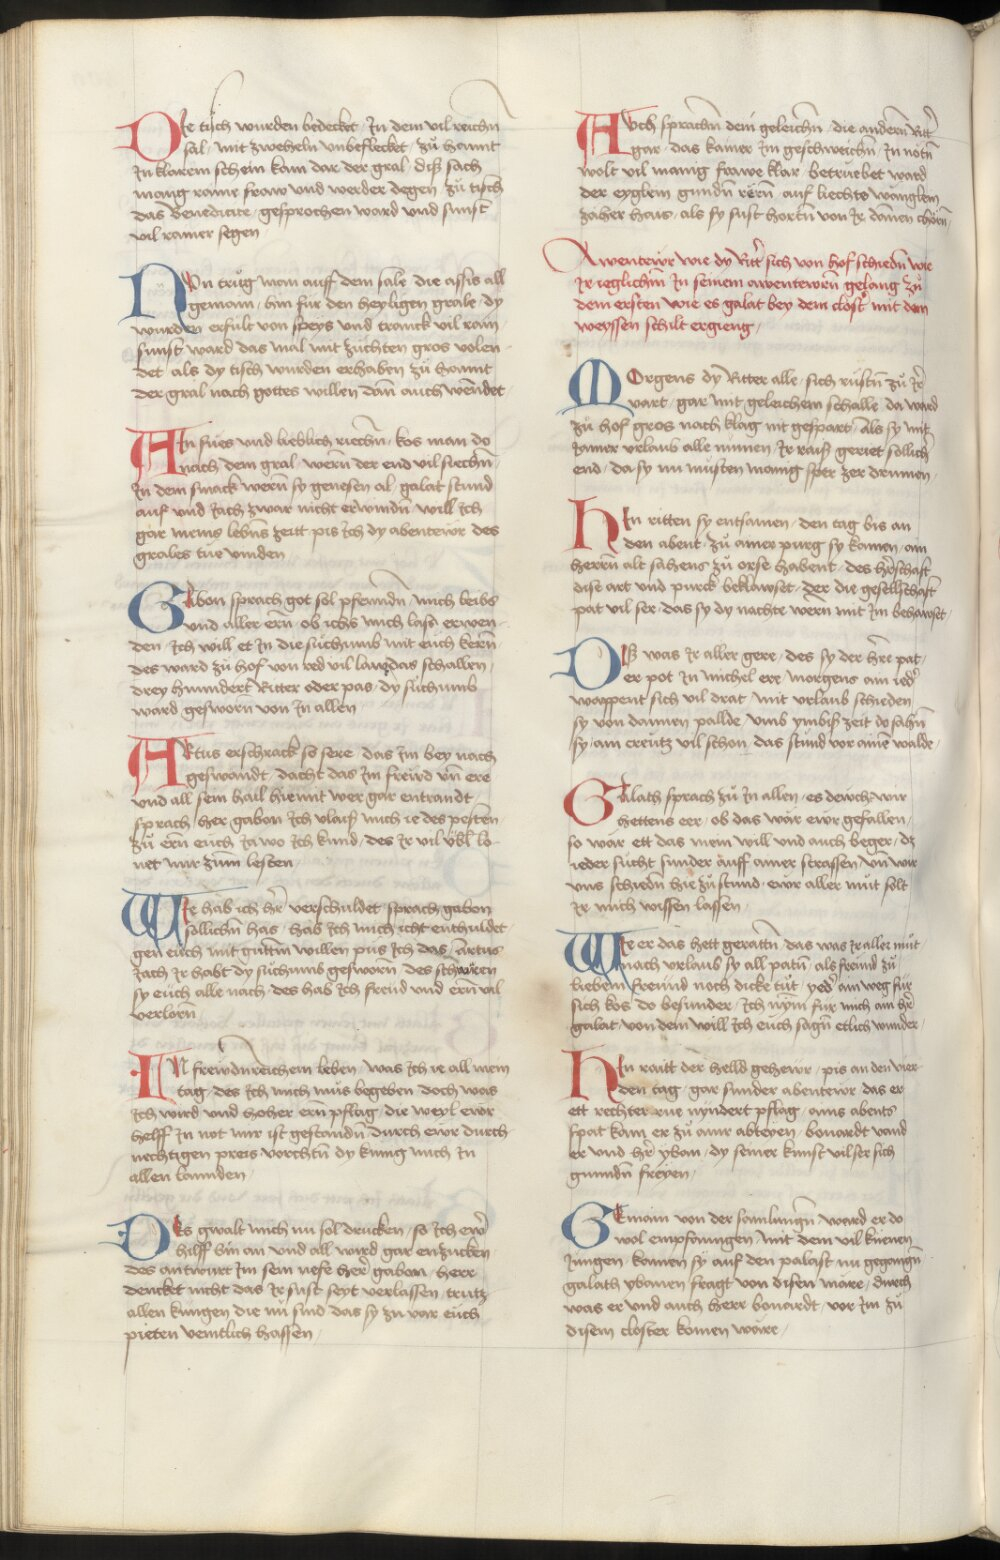 DIe tisch wurden bedecket / In dem vil reichñ
sal / mit zweheln unbeflecket / zů hannt
In klarem schein kam dar der gral / diß sach
manig raine fraw und werder degen / zů tisch
das Benedicite / gesprochen ward und sunst
vil rainer segen
NUn trůg man auf dem sale die assis all
gemain / hin für den heyligen grale / dy
wurden erfult von speys und tranck vil rain /
sunst ward das mal mit zuchten gros volen
det / als dy tisch wurden erhaben zů hannt
der gral nach gottes willen dan auch wendet
AIn sües und lieblich riechñ / kos man do
nach dem gral / wern der end vil siechñ /
In dem smack wern sy genesen al / galat stund
auf und Jach zwar nicht erwindñ will Ich
gar meins lebns zeitt / pis Ich dy abentewr des
grales tue vinden
GAbon sprach got sol pfrendñ mich leibs
und aller ern / ob ichs mich lass erwen
den / Ich will et In die süchumb mit euch kern /
des ward zů hof von red vil lawdas schallen /
drey hundert Ritter oder pas / dy süchumb
ward gesworn von In allen
ARtus erschrack so sere / das Im bey nach
geswandt / dacht das Im freud vñ ere
und all sein hail hiemit wer gar entrandt /
sprach / her gabon Ich vlaiss mich ie des pesten /
zů ern euch Ja wo Ich kund / des Ir vil ubl lo
net mir zum lesten
WIe hab ich hr verschuldet sprach gabon
sollichñ has / hab Ich mich icht enthuldet
gen euch mit guttm willen püs Ich das / artus
Jach Ir habt dy süchumb gesworn des schwuren
sy euch alle nach / des hab Ich freud und ern vil
verlorn
IN frewdnreichem leben / was Ich ie all mein
tag / des Ich mich mus begeben doch was
Ich wird und hoher ern pflag / die weyl ewr
helff In not mir ist gestandñ durch ewr durch
nechtigen preis vorchtn dy kunig mich In
allen lannden /
DEs gwalt mich nu sol drucken / so Ich ewr
hilff bin an und all wird gar enzucken
des antwurt Im sein nefe her gabon / herr
dencket nicht das Ir sust seyt verlassen / trutz
allen kungen die nu sind das sy zu var euch
pieten veintlich hassen /
AUch sprachñ dem geleichñ / die andern Ritr
gar / das kainer Im geschweichñ / In nötn
wolt vil manig frawe klar / betruebet ward
der eyglem gundn rern / auf liechte wänglem
zäher hais / als sy sust hortn von Ir dannen chörn /
Awentewr wie dy Ritr sich von hof schiedn wie
Ir ieglichm In seinem awentewrn gelang zů
dem ersten wie es galat bey dem clost mit dem
weyssen schilt ergieng /
MOrgens dy Ritter alle / sich rustn zů Ir
vart / gar mit geleichem schalle / da ward
zů hof gros nach klag nit gespart / als sy mit
Jamer urlaub alle numen / Ir rais geriet sollich
end / da sy nu musten manig sper zer drumen /
HIn ritten sy entsamen / den tag bis an
den abent / zů ainer purg sy kamen / ain
herrn alt sahens zů orse habent / des hrschaft
dise art und purck beklawset / der die gesellschaft
pat vil ser / das sy dy nachte wern mit Im behawset /
DIß was Ir aller gere / des sy der hre pat /
er pot In michel ere / morgens ain iedr
wappent sich vil drat / mit urlaub schieden
sy von dannen pallde / umb ymbiß zeit do sahñ
sy / ain creutz vil schon / das stund vor ainē walde /
GAlath sprach zů In allen / es deucht wir
hettens eer / ob das wär ewr gefallen /
so wär ett das mein will und auch beger / dz
ieder sucht sunder auff ainer strassen / un wir
uns schiedñ hie zůstund / ewr aller mut solt
Ir mich wissen lassen /
WIe er das hett gerattñ / das was Ir aller mut /
nach urlaub sy all patñ / als freund zů
liebem freund noch dicke tut / yedr ain weg für
sich kos do besunder / Ich nym fur mich ain hr
galat / von dem will Ich euch sagñ etlich wunder /
HIn raitt der helld gehewr / pis an den vier
den tag / gar sunder abentewr das er
ett rechter rue nyndert pflag / ains abents
spat kam er zů ainr abteyen / bonardt vand
er und hr ybon / dy seiner kunft vil ser sich
gunndñ freyen /
GEmain von der samlungñ ward er do
wol empfanngen / mit dem vil kuenen
Jungen / kamen sy auf den palast nu gegangñ
galath ybanen fragt von disen märe / durch
was er und auch herr bonardt / vor Im zů
disem closter komen wäre /